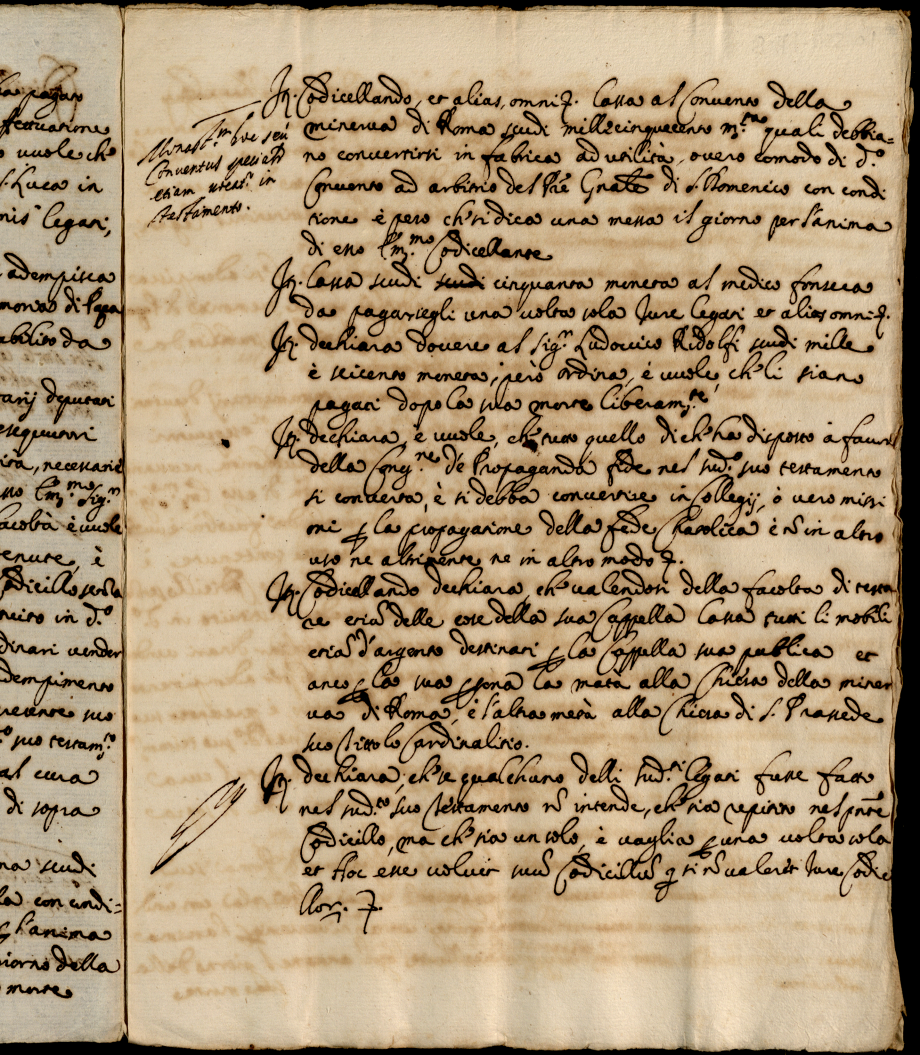 sta pagato
uuole ch.e
S. Luca in
legati,
adempisca
moria di Papa
abilito da
tarij deputati
essequutori
necessarie
esso Em.mo Sig.r
facoltà è uuole
tenute, è
in d.o
dinari uender
dempimento
suo
suo testam.to
al cura
di sopra
na scudi
la con condi=
l'anima
giorno della
morte
Monast.m siue seu
Conuentus
etiam in
testamento.
It. Codicellando, et alias, omni z. lassa al Conuento della
minerua di Roma scudi millecinquecento m.ta quali debbia=
no conuertirsi in fabrica ad utilità, ouero comodo di d.o
Conuento ad arbitrio del Pre Gnale di S. Domenico con condi
tione è pero ch'si dica una messa il giorno per l'anima
di esso Em.mo Codicellante
It. lassa scudi scudi cinquanta moneta al medico fonseca
da pagarsegli una uolta sola Jure legati et alias omni z.
It. dechiara douere al Sig.r Ludouico Ridolfi scudi mille
è seicento moneta, però ordina, è uuole ch'li siano
pagati dopo la sua morte liberam.te
It. dechiara, è uuole, ch'tutto quello di ch'ha disposto à fauore
della Cong.ne de Propaganda fide nel sud.o suo testamento
si conuerta, è si debba conuertire in Collegij, ò uero missi
oni p la propagatione della fede Chatolica è nō in altro
uso ne altrimente ne in altro modo z.
It. Codicellando dechiara, ch'ualendosi della facolta di testa
re etiā delle cose della sua Cappella lassa tutti li mobili
etiā d'argento destinati p la Cappella sua publica et
anco p la sua psona la metà alla Chiesa della miner
ua di Roma, è l'altra metà alla Chiesa di S. Prassede
suo Tittolo Cardinalitio.
It. dechiara, ch'se qualchuno delli sud.ti legati fusse fatto
nel sud.to suo Testamento nō intende, ch'sia repitito nel pnte
Codicillo, ma ch'sia un solo, è uaglia p una uolta sola
et hoc esse uoluit suū Codicillū q si nō ualeret Jure Codici
llor. z.